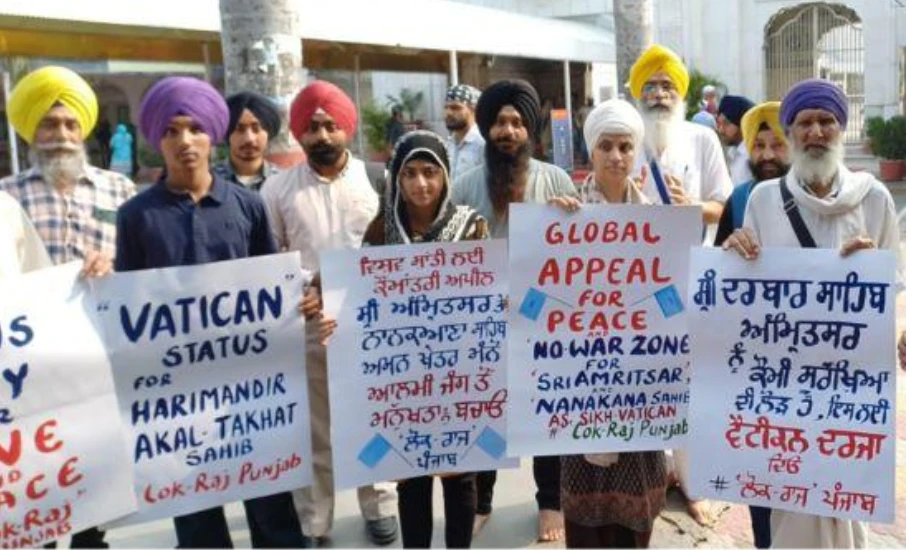 "VATICAN"
STATUS
FOR
HARIMANDIR
AKAL-TAKHAT
SAHIB
Lok-Raj Punjab
ਵਿਸ਼ਵ ਸ਼ਾਂਤੀ ਲਈ
ਕੌਮਾਂਤਰੀ ਅਪੀਲ
ਸ੍ਰੀ ਅੰਮ੍ਰਿਤਸਰ ਤੇ
ਨਾਨਕਆਣਾ ਸਾਹਿਬ
ਅਮਨ ਖੇਤਰ ਮੰਨੋ
ਆਲਮੀ ਜੰਗ ਤੋਂ
ਮਨੁੱਖਤਾ ਨੂੰ ਬਚਾਓ
'ਲੋਕ-ਰਾਜ'
ਪੰਜਾਬ
GLOBAL
APPEAL
FOR
PEACE
AND
'NO-WAR ZONE
FOR
'SRI AMRITSAR,'
'NANAKANA SAHIB
AS SIKH-VATICAN
# Lok-Raj Punjab
ਸ੍ਰੀ ਦਰਬਾਰ ਸਾਹਿਬ
ਅੰਮ੍ਰਿਤਸਰ
ਨੂੰ ਕੌਮੀ ਸੁਰੱਖਿਆ
ਦੀ ਲੋੜ ਹੈ, ਇਸ ਲਈ
ਵੈਟੀਕਨ ਦਰਜਾ
ਦਿਓ
# 'ਲੋਕ-ਰਾਜ' ਪੰਜਾਬ